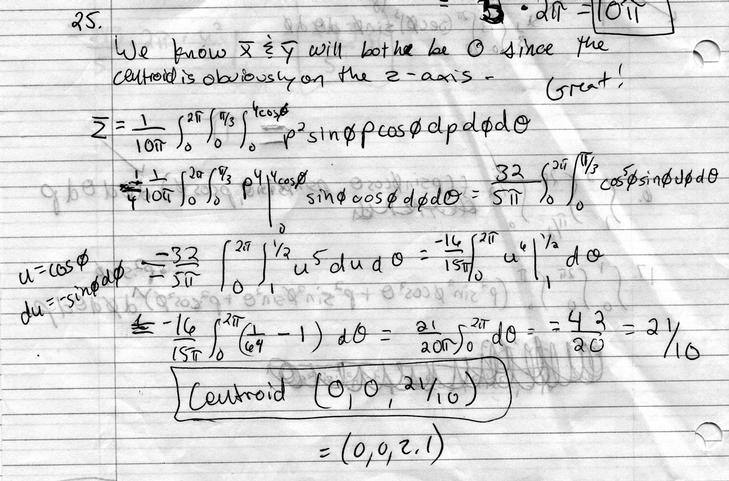 5 · 2π = 10π
25.
We know x̄ & ȳ will bothe be 0 since the
centroid is obviously on the z-axis - Great!
z̄ = 1/10π ∫₀^2π ∫₀^π/3 ∫₀^4cosφ ρ² sinφ ρcosφ dρ dφ dθ
= 1/4 1/10π ∫₀^2π ∫₀^π/3 ρ⁴ |₀^4cosφ sinφ cosφ dφ dθ = 32/5π ∫₀^2π ∫₀^π/3 cos⁵φ sinφ dφ dθ
u = cosφ
du = -sinφ dφ
= -32/5π ∫₀^2π ∫₁^1/2 u⁵ du dθ = -16/15π ∫₀^2π u⁶ |₁^1/2 dθ
= -16/15π ∫₀^2π (1/64 - 1) dθ = 21/20π ∫₀^2π dθ = = 42/20 = 21/10
Centroid (0, 0, 21/10)
= (0, 0, 2.1)